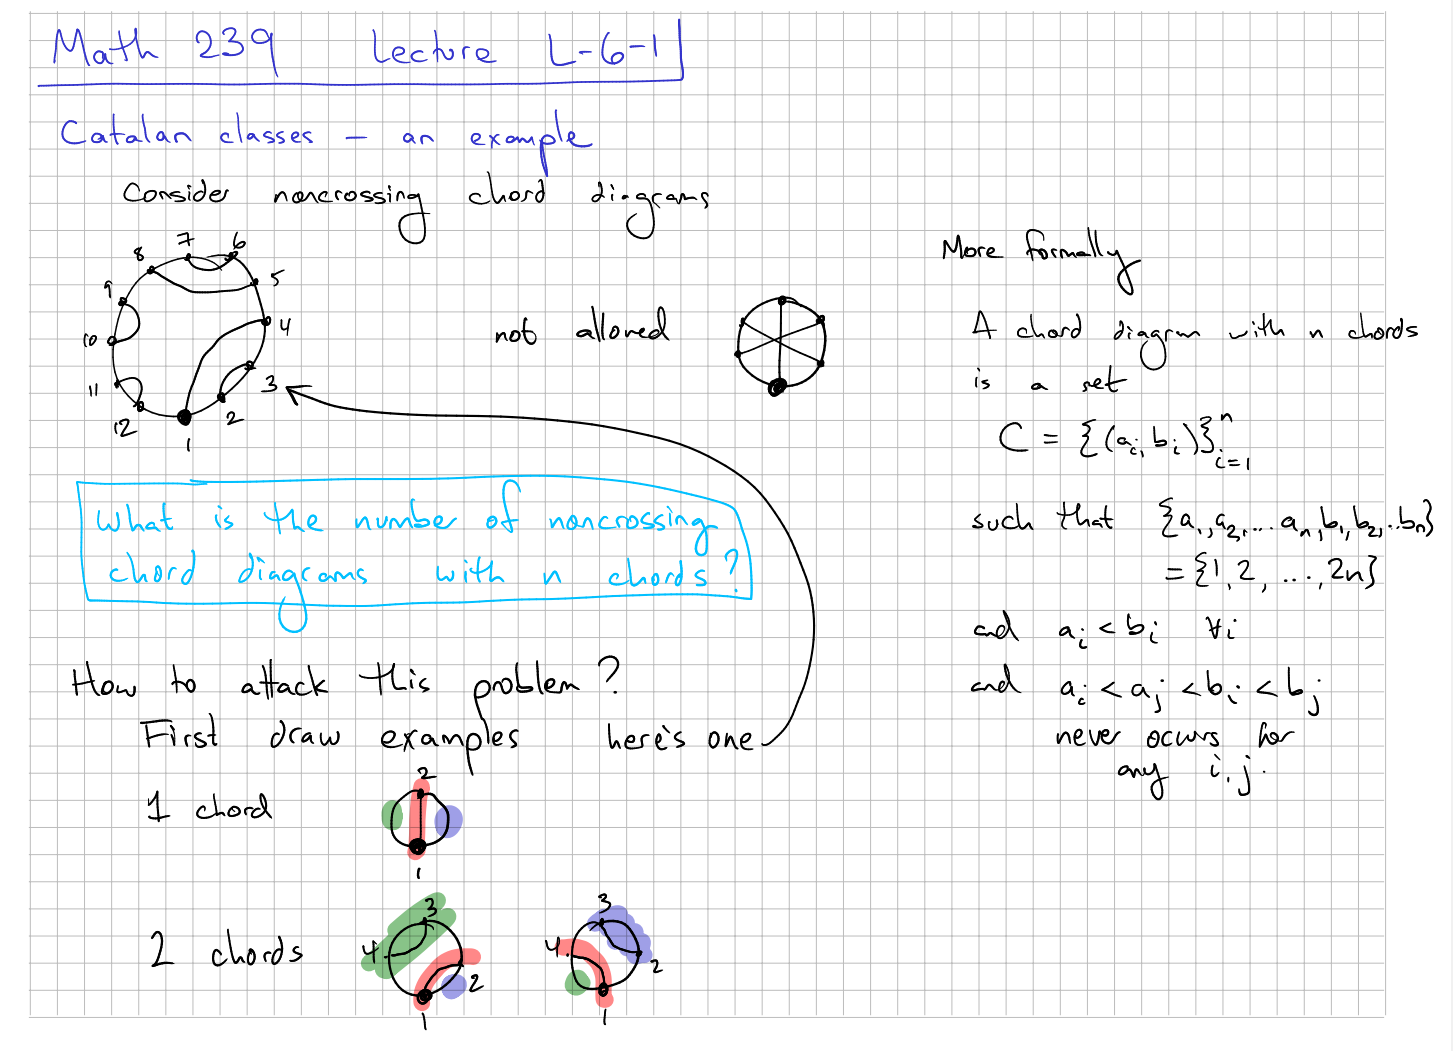 Math 239 Lecture L-6-1
Catalan classes - an example
Consider noncrossing chord diagrams
8 7 6
9 5
10 4
11 3
12 1 2
not allowed
What is the number of noncrossing
chord diagrams with n chords?
How to attack this problem?
First draw examples here's one
1 chord
2
1
2 chords
3
4
2
1
3
4
2
1
More formally
A chord diagram with n chords
is a set
C = {(a_i, b_i)}_{i=1}^n
such that {a_1, a_2, ... a_n, b_1, b_2, .. b_n}
= {1, 2, ..., 2n}
and a_i < b_i ∀i
and a_i < a_j < b_i < b_j
never occurs for
any i, j.